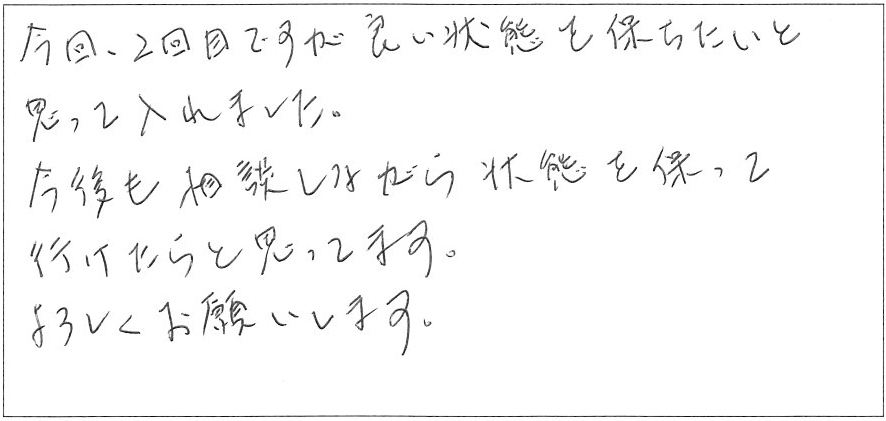 今回、2回目ですが良い状態を保ちたいと
思って入れました。
今後も相談しながら状態を保って
行けたらと思ってます。
よろしくお願いします。